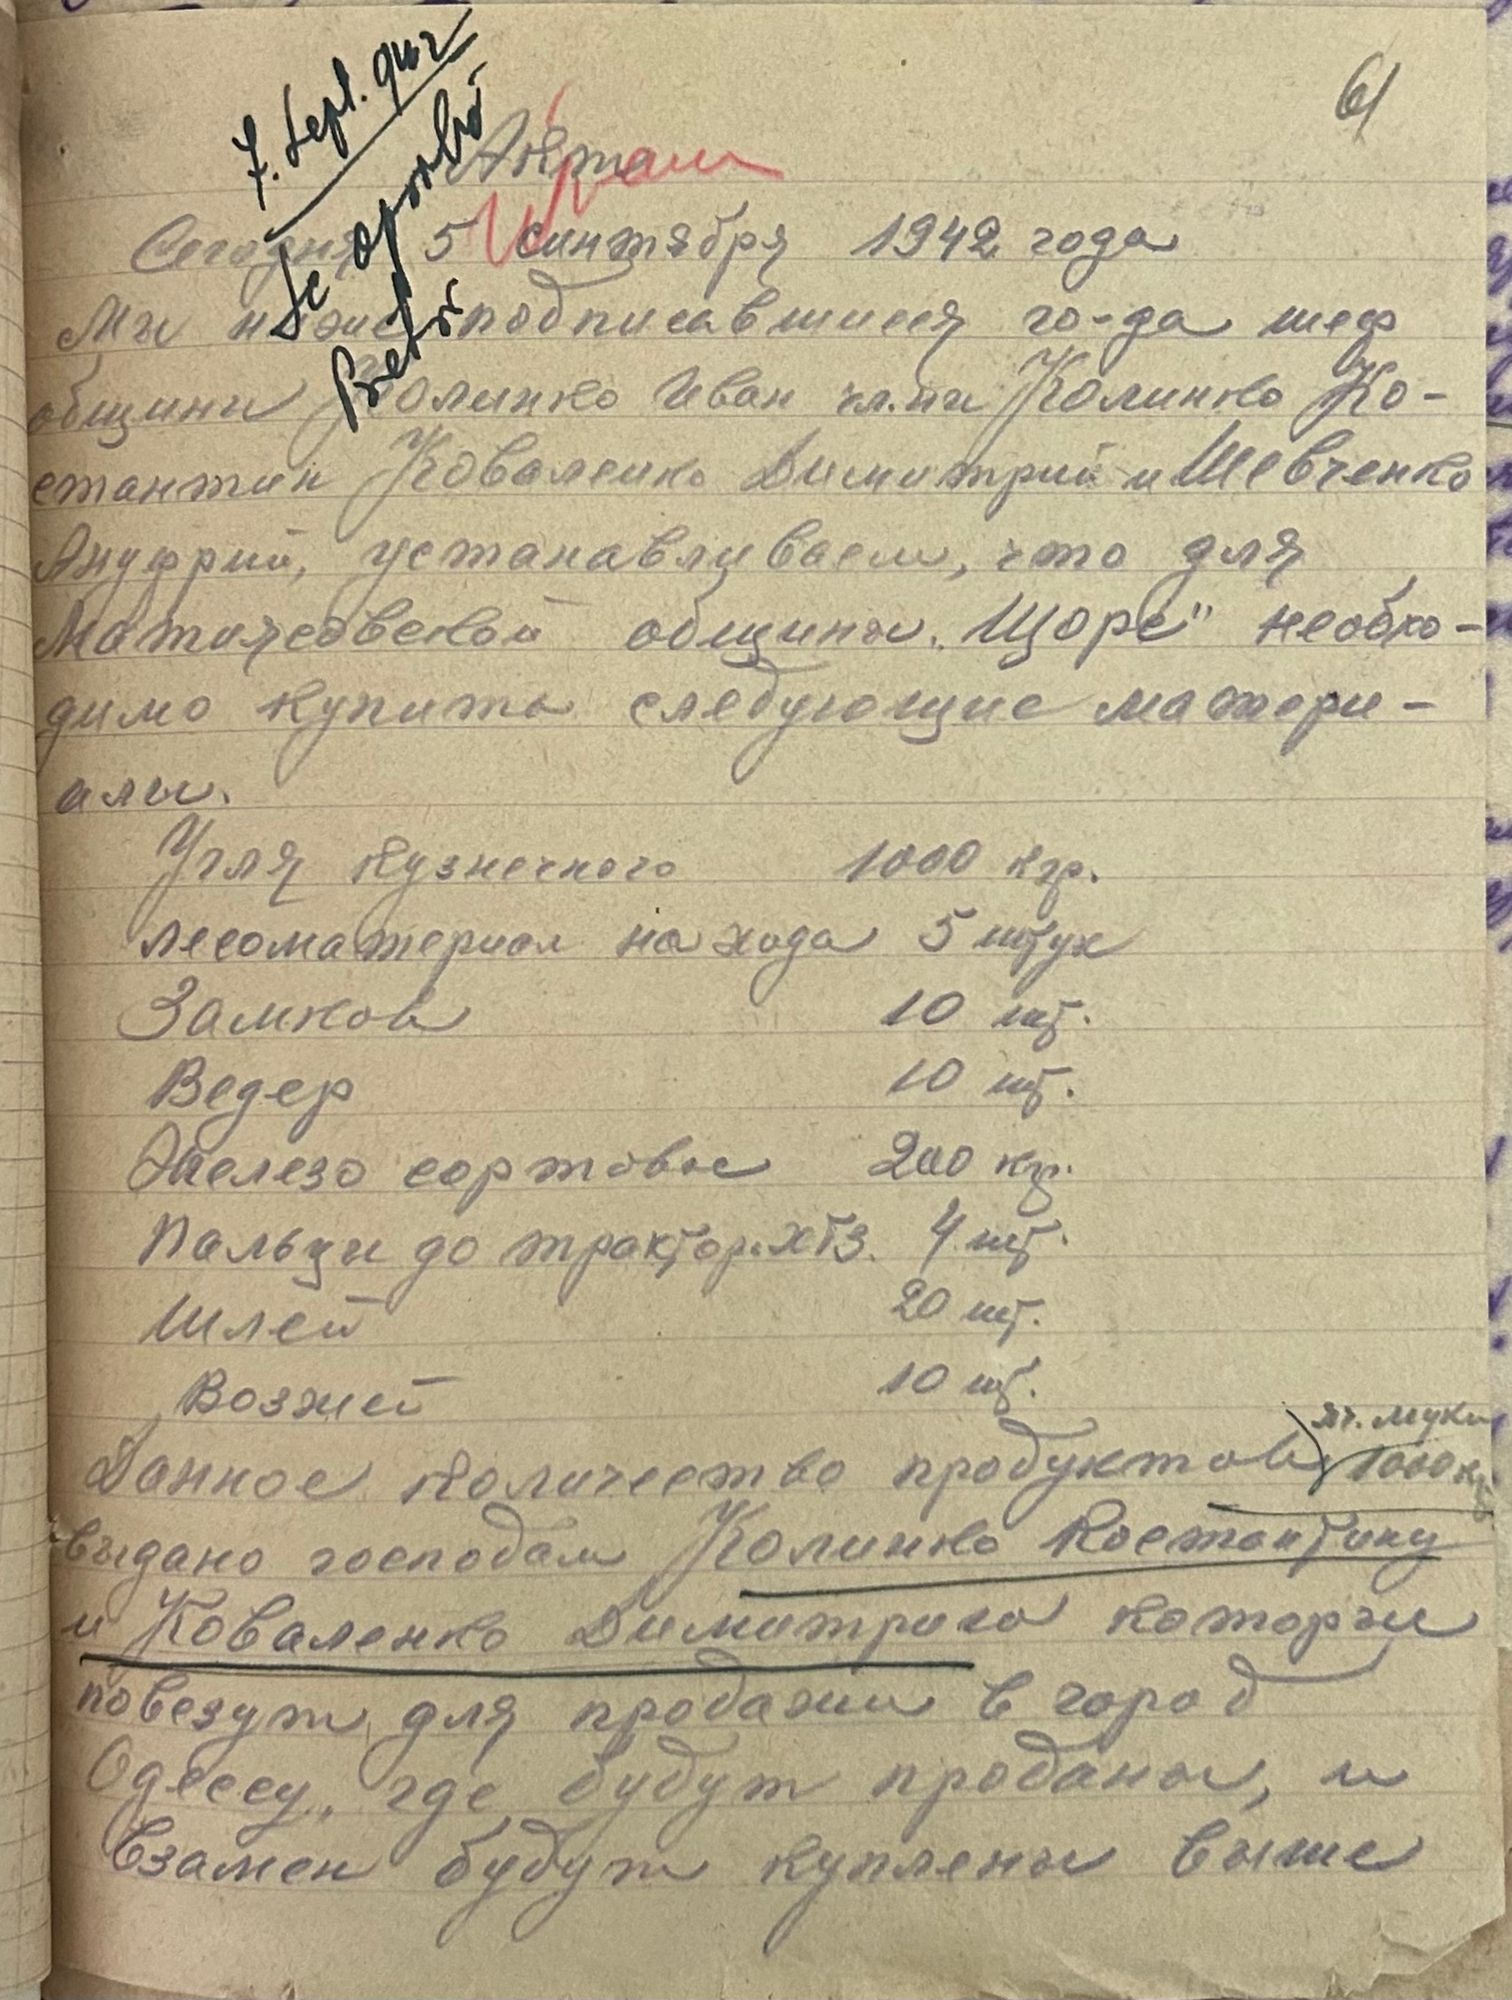 61
7. Sept. 942
Se aprobă
Актъ
Сегодня 5 сентября 1942 года
Мы ниже подписавшиеся го-да шеф
общины Колинко Иван чл.пи Колинко Ко-
стантин Коваленко Димитрий и Шевченко
Ануфрий, устанавливаем, что для
Матиясовской общины „Щорс" необхо-
димо купить следующие матери-
алы.
Угля кузнечного 1000 кгр.
лесоматериал на хода 5 штук
Замков 10 шт.
Ведер 10 шт.
Железо сортовое 200 кгр.
Пальцы до трактор. ХТЗ. 4 шт.
Шлей 20 шт.
Возжей 10 шт.
яч. муки
Данное количество продуктов 1000 кг
выдано господам Колинко Костантину
и Коваленко Димитрию которы
повезут для продажи в город
Одессу, где будут проданы, и
взамен будут куплены выше